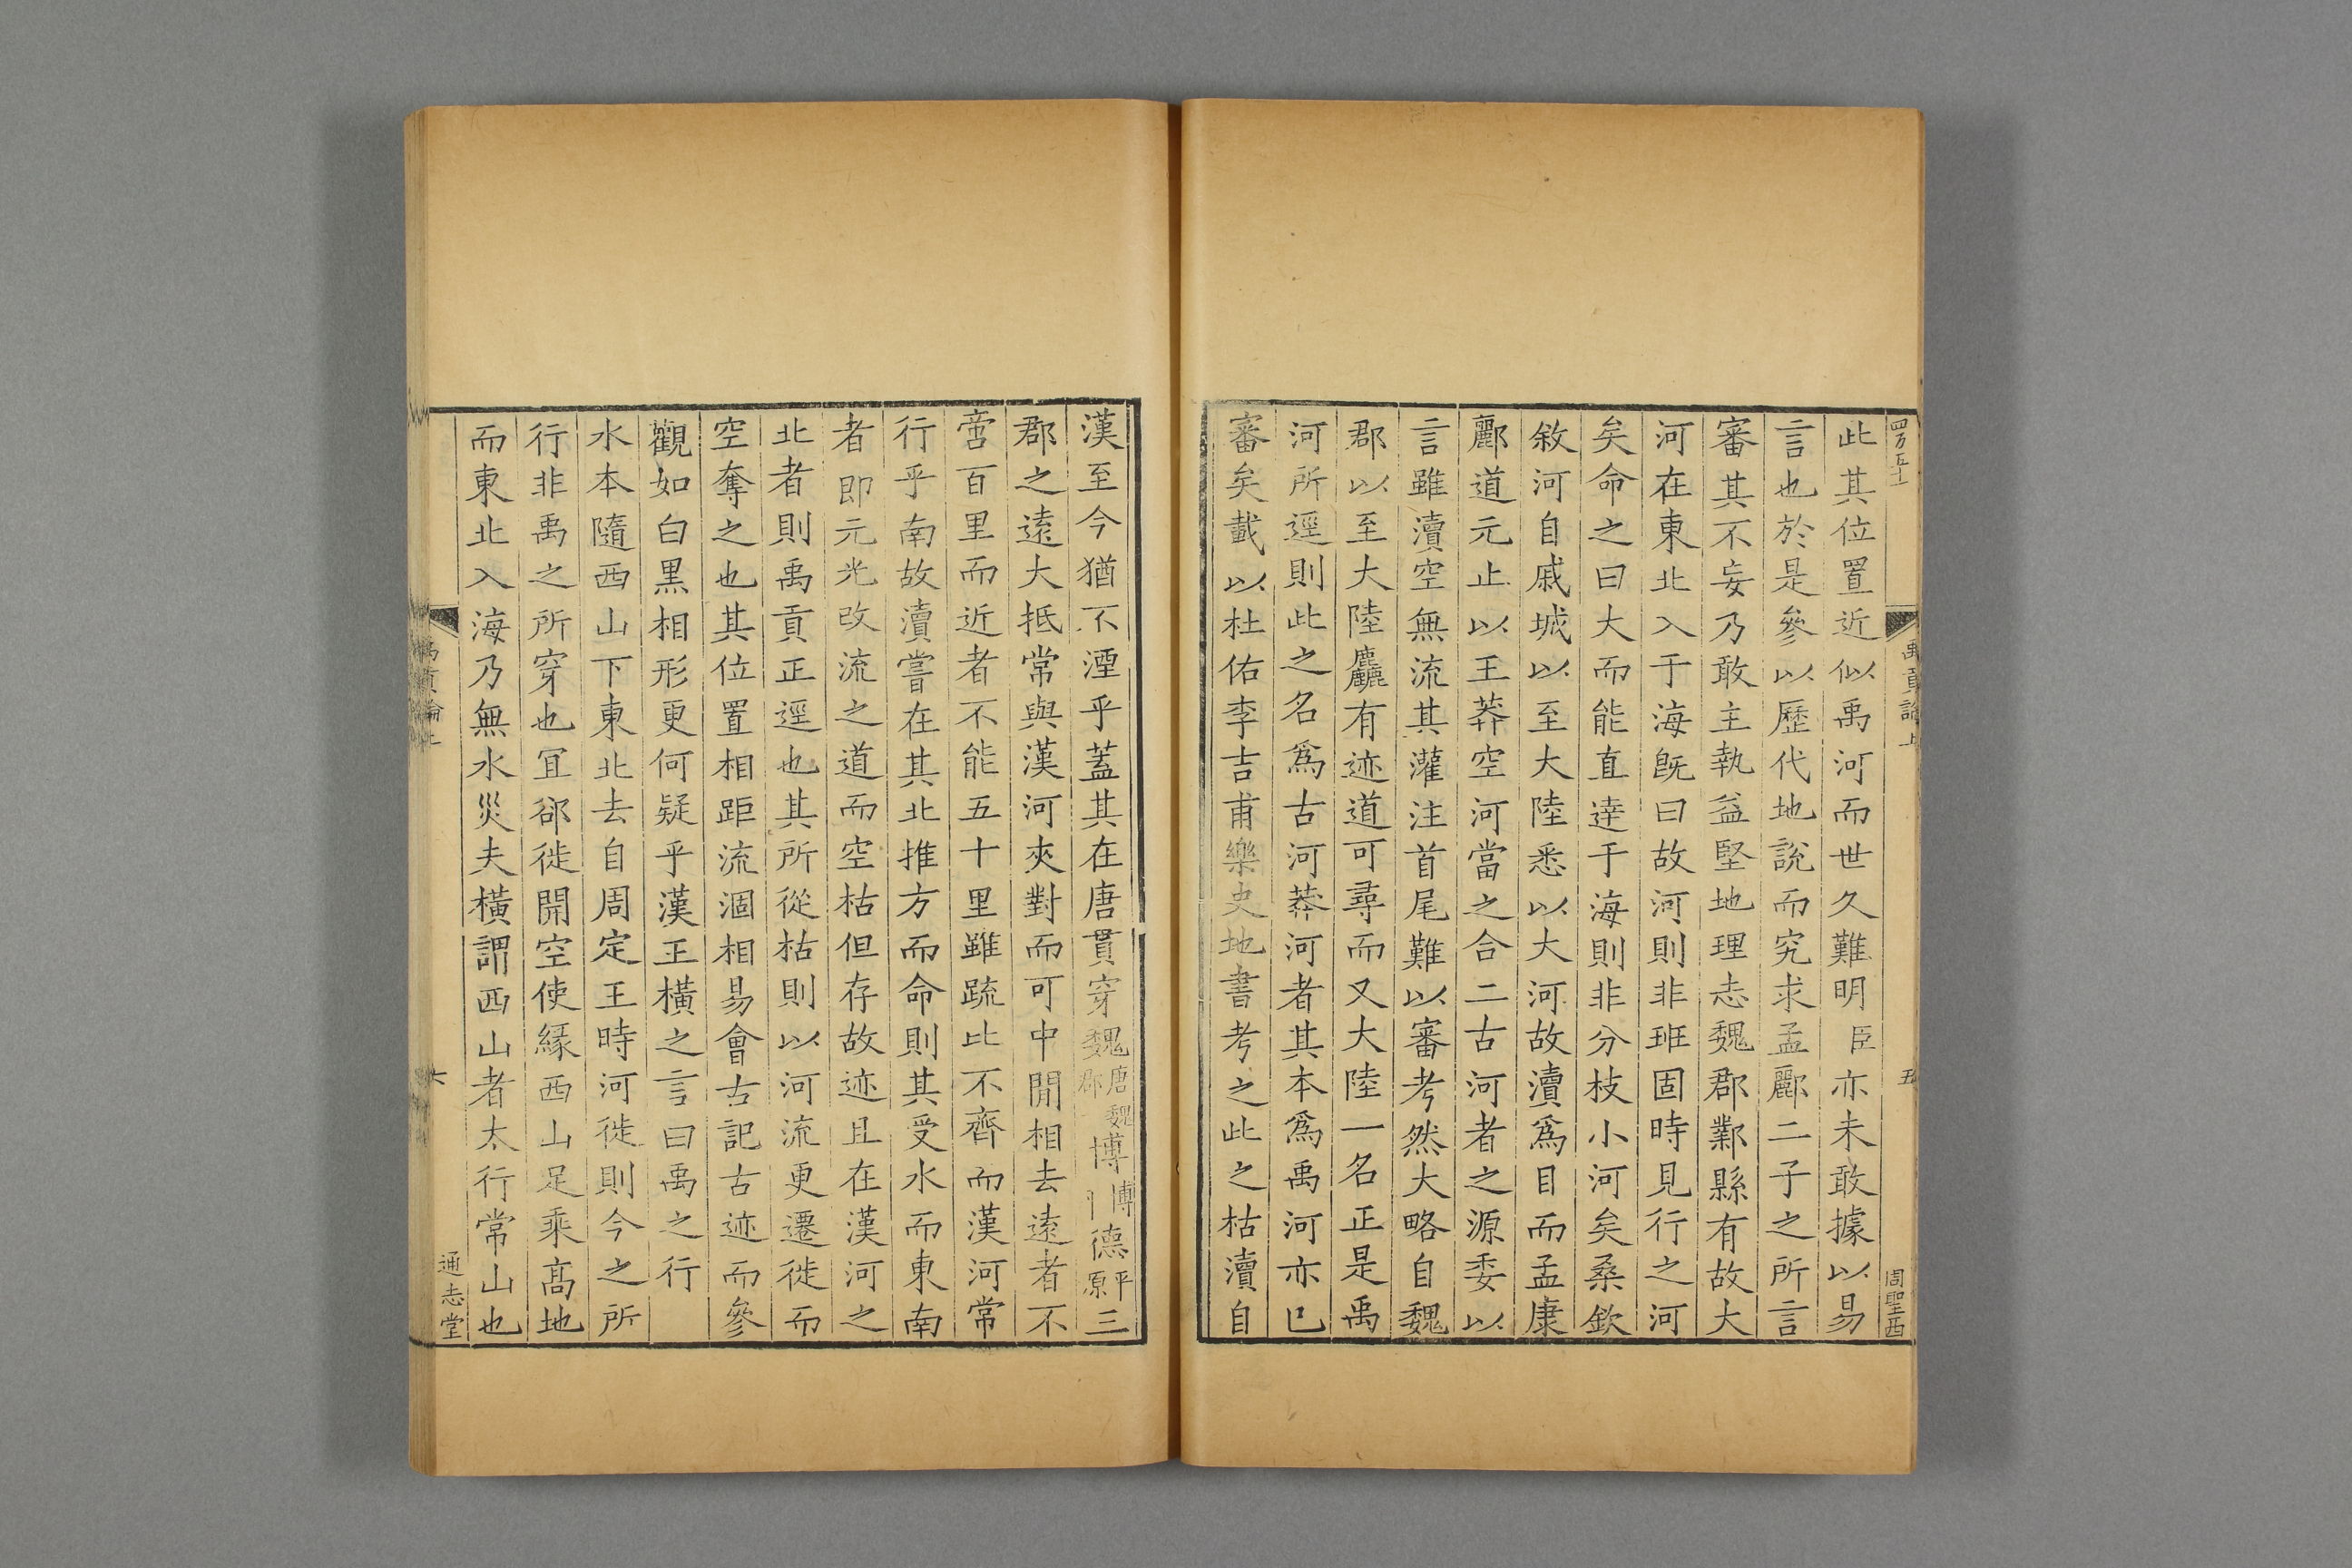 四百五十
禹貢論上
五
周聖西
此其位置近似禹河而世久難明臣亦未敢據以易
言也於是參以歷代地說而究求孟酈二子之所言
審其不妄乃敢主執益堅地理志魏郡鄴縣有故大
河在東北入于海既曰故河則非班固時見行之河
矣命之曰大而能直達于海則非分枝小河矣桑欽
敘河自戚城以至大陸悉以大河故瀆爲目而孟康
酈道元止以王莽空河當之合二古河者之源委以
言雖瀆空無流其灌注首尾難以審考然大略自魏
郡以至大陸麤有迹道可尋而又大陸一名正是禹
河所逕則此之名爲古河莽河者其本爲禹河亦已
審矣載以杜佑李吉甫樂史地書考之此之枯瀆自
漢至今猶不湮乎蓋其在唐貫穿魏唐魏郡博博德平原三
郡之遠大抵常與漢河夾對而可中閒相去遠者不
啻百里而近者不能五十里雖疏比不齊而漢河常
行乎南故瀆嘗在其北推方而命則其受水而東南
者即元光改流之道而空枯但存故迹且在漢河之
北者則禹貢正逕也其所從枯則以河流更遷徙而
空奪之也其位置相距流涸相易會古記古迹而參
觀如白黑相形更何疑乎漢王橫之言曰禹之行
水本隨西山下東北去自周定王時河徙則今之所
行非禹之所穿也宜郤徙開空使緣西山足乘高地
而東北入海乃無水災夫橫謂西山者太行常山也
禹貢論上
六
通志堂